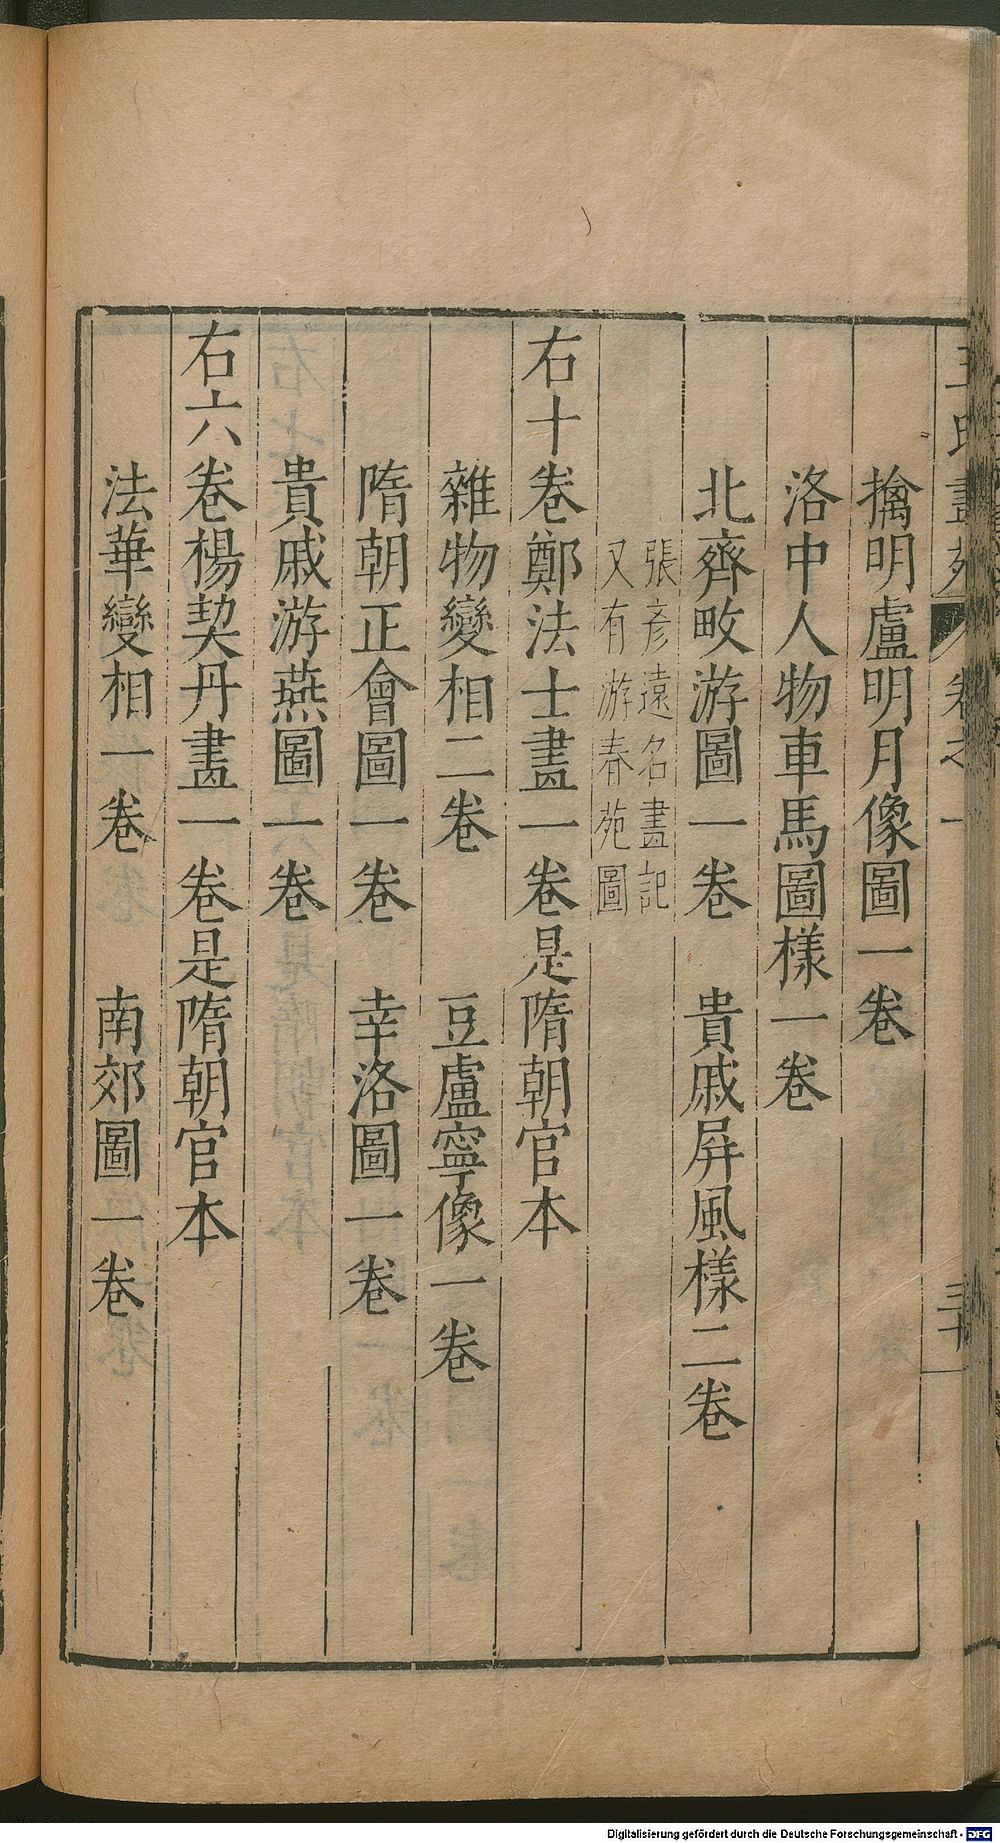 擒明盧明月像圖一卷
洛中人物車馬圖樣一卷
北齊畋游圖一卷　貴戚屏風樣二卷
張彥遠名畫記
又有游春苑圖
右十卷鄭法士畫一卷是隋朝官本
雜物變相二卷　豆盧寧像一卷
隋朝正會圖一卷　幸洛圖一卷
貴戚游燕圖一卷
右六卷楊契丹畫一卷是隋朝官本
法華變相一卷　南郊圖一卷
Digitalisierung gefördert durch die Deutsche Forschungsgemeinschaft - DFG